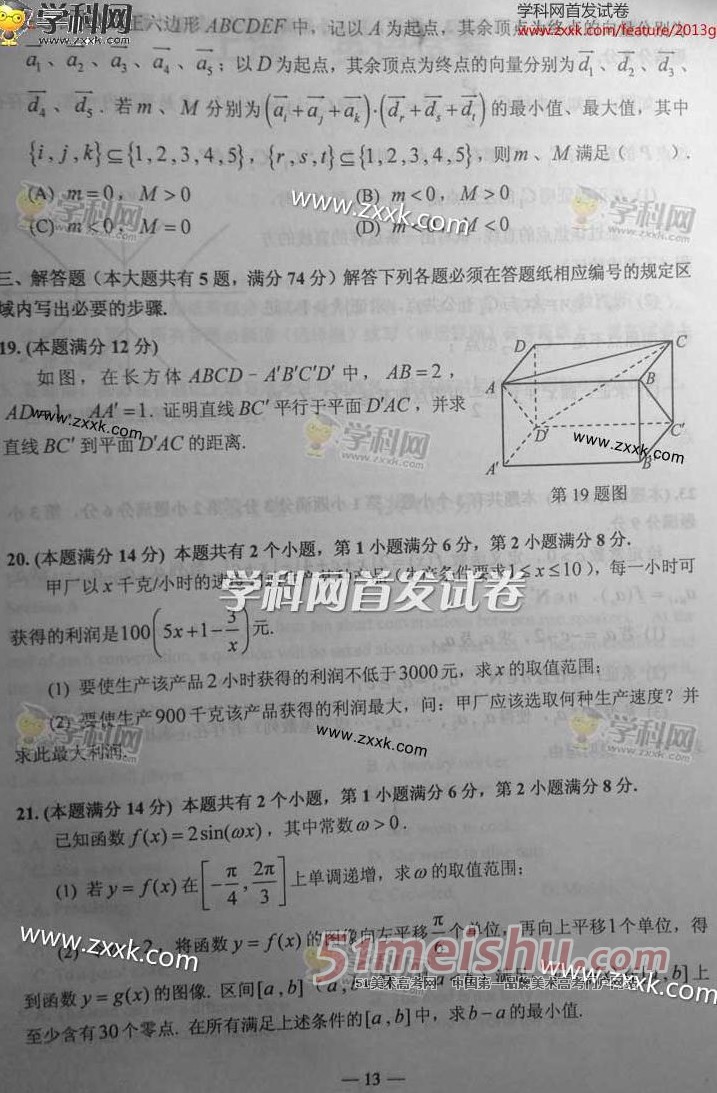 学科网首发试卷
www.zxxk.com/feature/2013g
学科网
正六边形 ABCDEF 中，记以 A 为起点，其余顶点为终点的向量分别为
a₁、a₂、a₃、a₄、a₅；以 D 为起点，其余顶点为终点的向量分别为 d₁、d₂、d₃、
d₄、d₅．若 m、M 分别为 (aᵢ+aⱼ+aₖ)·(dᵣ+dₛ+dₜ) 的最小值、最大值，其中
{i,j,k}⊆{1,2,3,4,5}，{r,s,t}⊆{1,2,3,4,5}，则 m、M 满足（　　）．
(A) m=0，M>0 (B) m<0，M>0
(C) m<0，M=0 (D) m<0，M<0
学科网 www.zxxk.com 学科网
三、解答题（本大题共有 5 题，满分 74 分）解答下列各题必须在答题纸相应编号的规定区
域内写出必要的步骤．
19. (本题满分 12 分)
如图，在长方体 ABCD－A'B'C'D' 中，AB=2，
AD=1，AA'=1．证明直线 BC' 平行于平面 D'AC，并求
直线 BC' 到平面 D'AC 的距离．
www.zxxk.com 学科网
D C
A B
D' C'
A' B'
www.zxxk.com
第 19 题图
20. (本题满分 14 分) 本题共有 2 个小题，第 1 小题满分 6 分，第 2 小题满分 8 分．
甲厂以 x 千克/小时的速度 生产条件要求 1≤x≤10），每一小时可
学科网首发试卷
获得的利润是 100(5x+1−3/x) 元．
(1) 要使生产该产品 2 小时获得的利润不低于 3000 元，求 x 的取值范围；
(2) 要使生产 900 千克该产品获得的利润最大，问：甲厂应该选取何种生产速度？并
求此最大利润．
学科网 www.zxxk.com 学科网
21. (本题满分 14 分) 本题共有 2 个小题，第 1 小题满分 6 分，第 2 小题满分 8 分．
已知函数 f(x)=2sin(ωx)，其中常数 ω>0．
(1) 若 y=f(x) 在 [−π/4, 2π/3] 上单调递增，求 ω 的取值范围；
(2) 2，将函数 y=f(x) 的图像向左平移 π/6 个单位，再向上平移 1 个单位，得
到函数 y=g(x) 的图像．区间 [a,b] (a,b [a,b] 上
至少含有 30 个零点．在所有满足上述条件的 [a,b] 中，求 b−a 的最小值．
www.zxxk.com
学科网
51meishu.com
51美术高考网 中国第一品牌美术高考门户网站
— 13 —